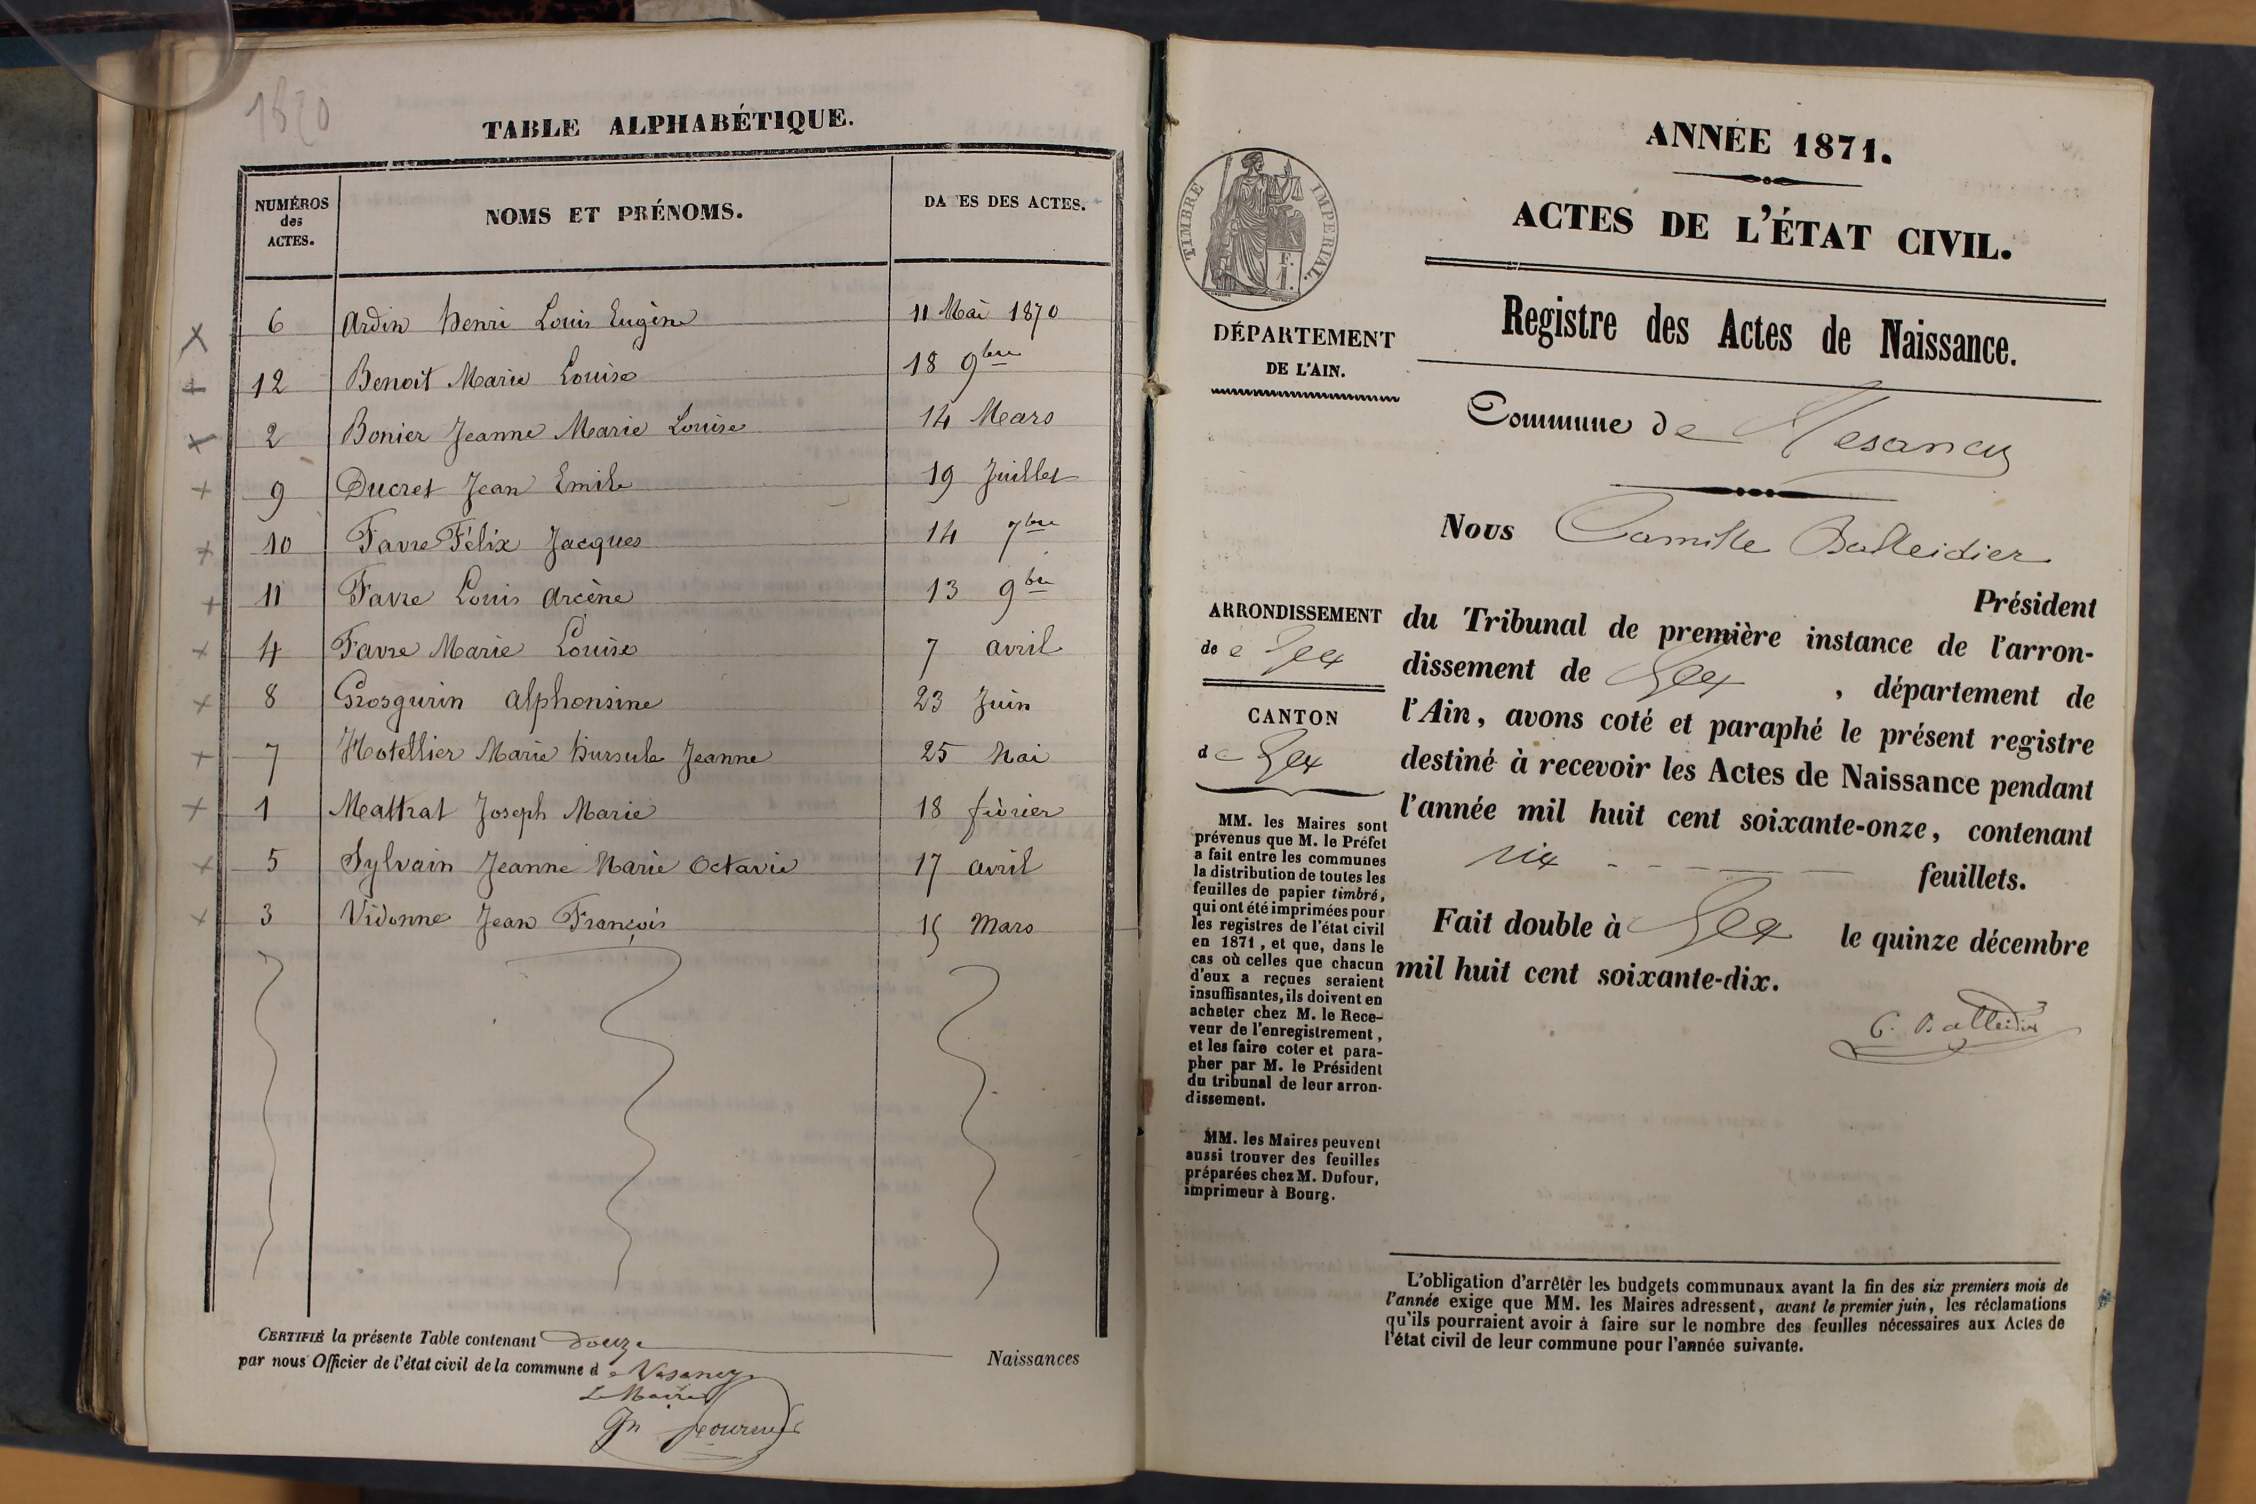 1870
TABLE ALPHABÉTIQUE.
NUMÉROS des ACTES. NOMS ET PRÉNOMS. DA ES DES ACTES.
6 Ardin henri Louis Eugène 11 Mai 1870
12 Benoit Marie Louise 18 9bre
2 Bonier Jeanne Marie Louise 14 Mars
9 Ducret Jean Emile 19 Juillet
10 Favre Félix Jacques 14 7bre
11 Favre Louis Arcène 13 9bre
4 Favre Marie Louise 7 avril
8 Grosgurin Alphonsine 23 Juin
7 Hotellier Marie hursule Jeanne 25 Mai
1 Mattrat Joseph Marie 18 février
5 Sylvain Jeanne Marie Octavie 17 avril
3 Vidonne Jean François 15 Mars
CERTIFIÉ la présente Table contenant Douze Naissances
par nous Officier de l'état civil de la commune de Vesancy
Le Maire
ANNÉE 1871.
ACTES DE L'ÉTAT CIVIL.
TIMBRE IMPERIAL.
Registre des Actes de Naissance.
DÉPARTEMENT
DE L'AIN.
Commune de Vesancy
Nous Camille Balleidier
Président
du Tribunal de première instance de l'arron-
dissement de Gex, département de
l'Ain, avons coté et paraphé le présent registre
destiné à recevoir les Actes de Naissance pendant
l'année mil huit cent soixante-onze, contenant
six feuillets.
Fait double à Gex le quinze décembre
mil huit cent soixante-dix.
C. Balleidier
ARRONDISSEMENT
de Gex
CANTON
de Gex
MM. les Maires sont
prévenus que M. le Préfet
a fait entre les communes
la distribution de toutes les
feuilles de papier timbré,
qui ont été imprimées pour
les registres de l'état civil
en 1871, et que, dans le
cas où celles que chacun
d'eux a reçues seraient
insuffisantes, ils doivent en
acheter chez M. le Rece-
veur de l'enregistrement,
et les faire coter et para-
pher par M. le Président
du tribunal de leur arron-
dissement.
MM. les Maires peuvent
aussi trouver des feuilles
préparées chez M. Dufour,
imprimeur à Bourg.
L'obligation d'arrêter les budgets communaux avant la fin des six premiers mois de
l'année exige que MM. les Maires adressent, avant le premier juin, les réclamations
qu'ils pourraient avoir à faire sur le nombre des feuilles nécessaires aux Actes de
l'état civil de leur commune pour l'année suivante.